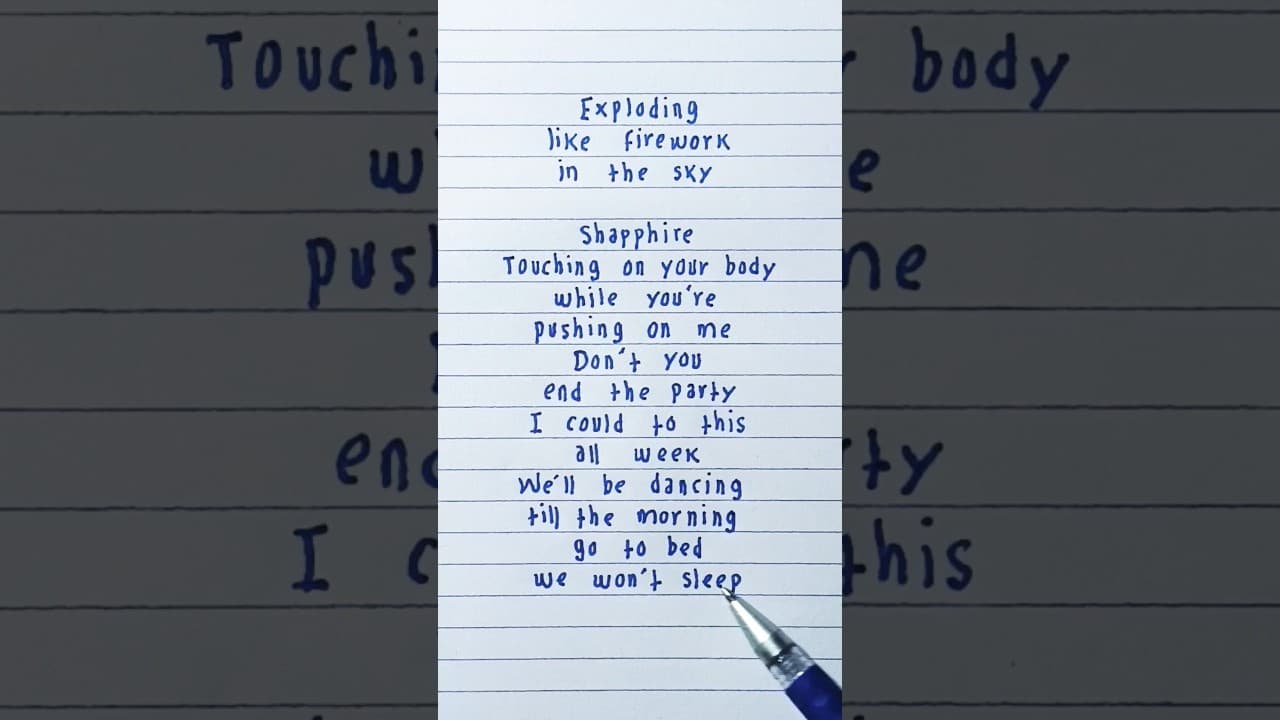 Exploding
like firework
in the sky
Shapphire
Touching on your body
while you're
pushing on me
Don't you
end the party
I could to this
all week
We'll be dancing
till the morning
go to bed
we won't sleep